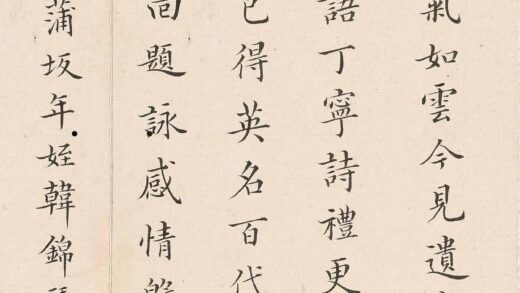 氣如雲今見遺
語丁寧詩禮更
已得英名百代
回題詠感情
蒲坂年姪韓錦